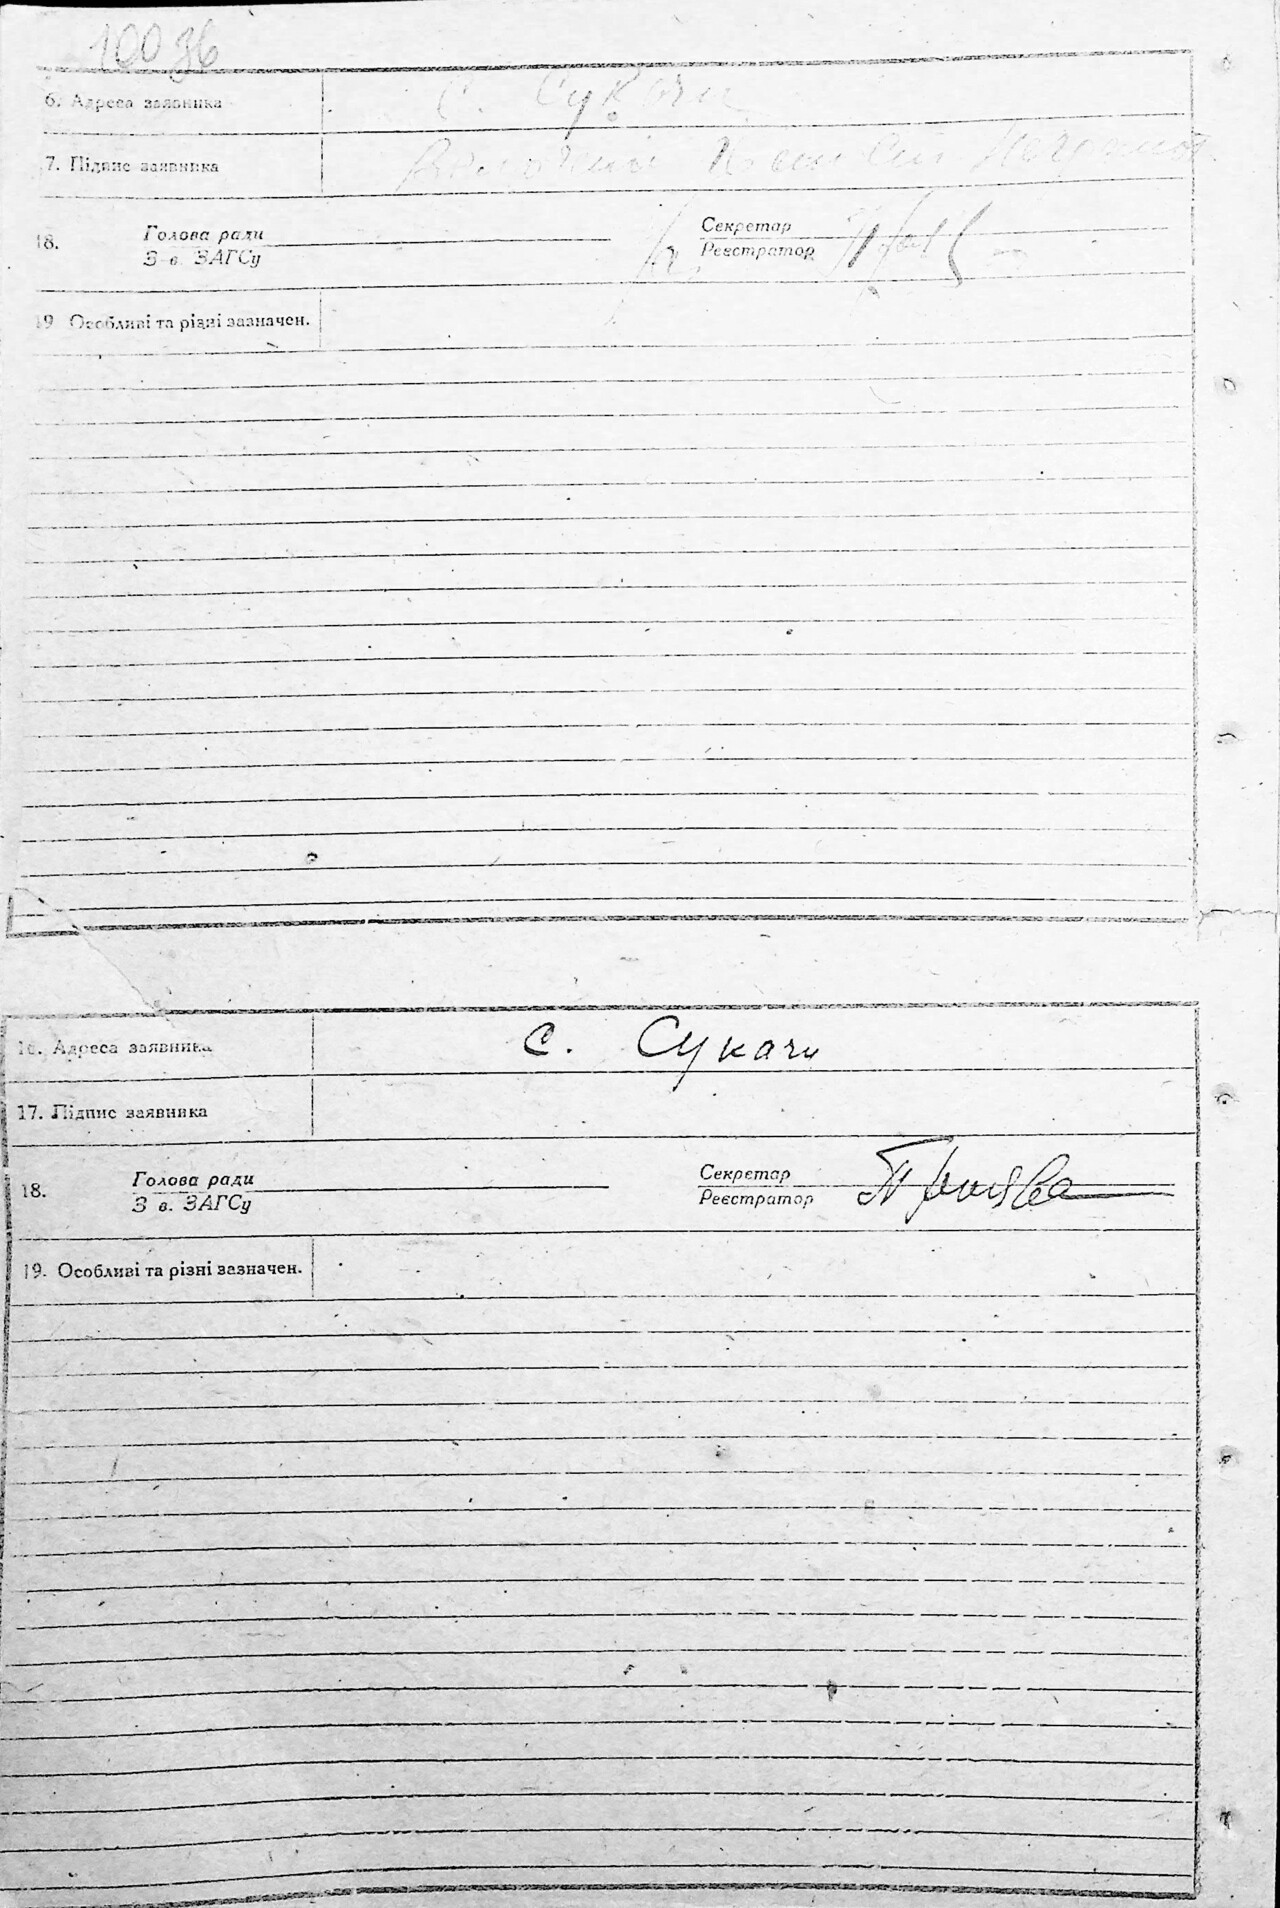 100 зб
6. Адреса заявника с. Сукачи
7. Підпис заявника
18. Голова ради Секретар
З в. ЗАГСу Реєстратор
19 Особливі та різні зазначен.
16. Адреса заявника с. Сукачи
17. Підпис заявника
18. Голова ради Секретар
З в. ЗАГСу Реєстратор
19. Особливі та різні зазначен.